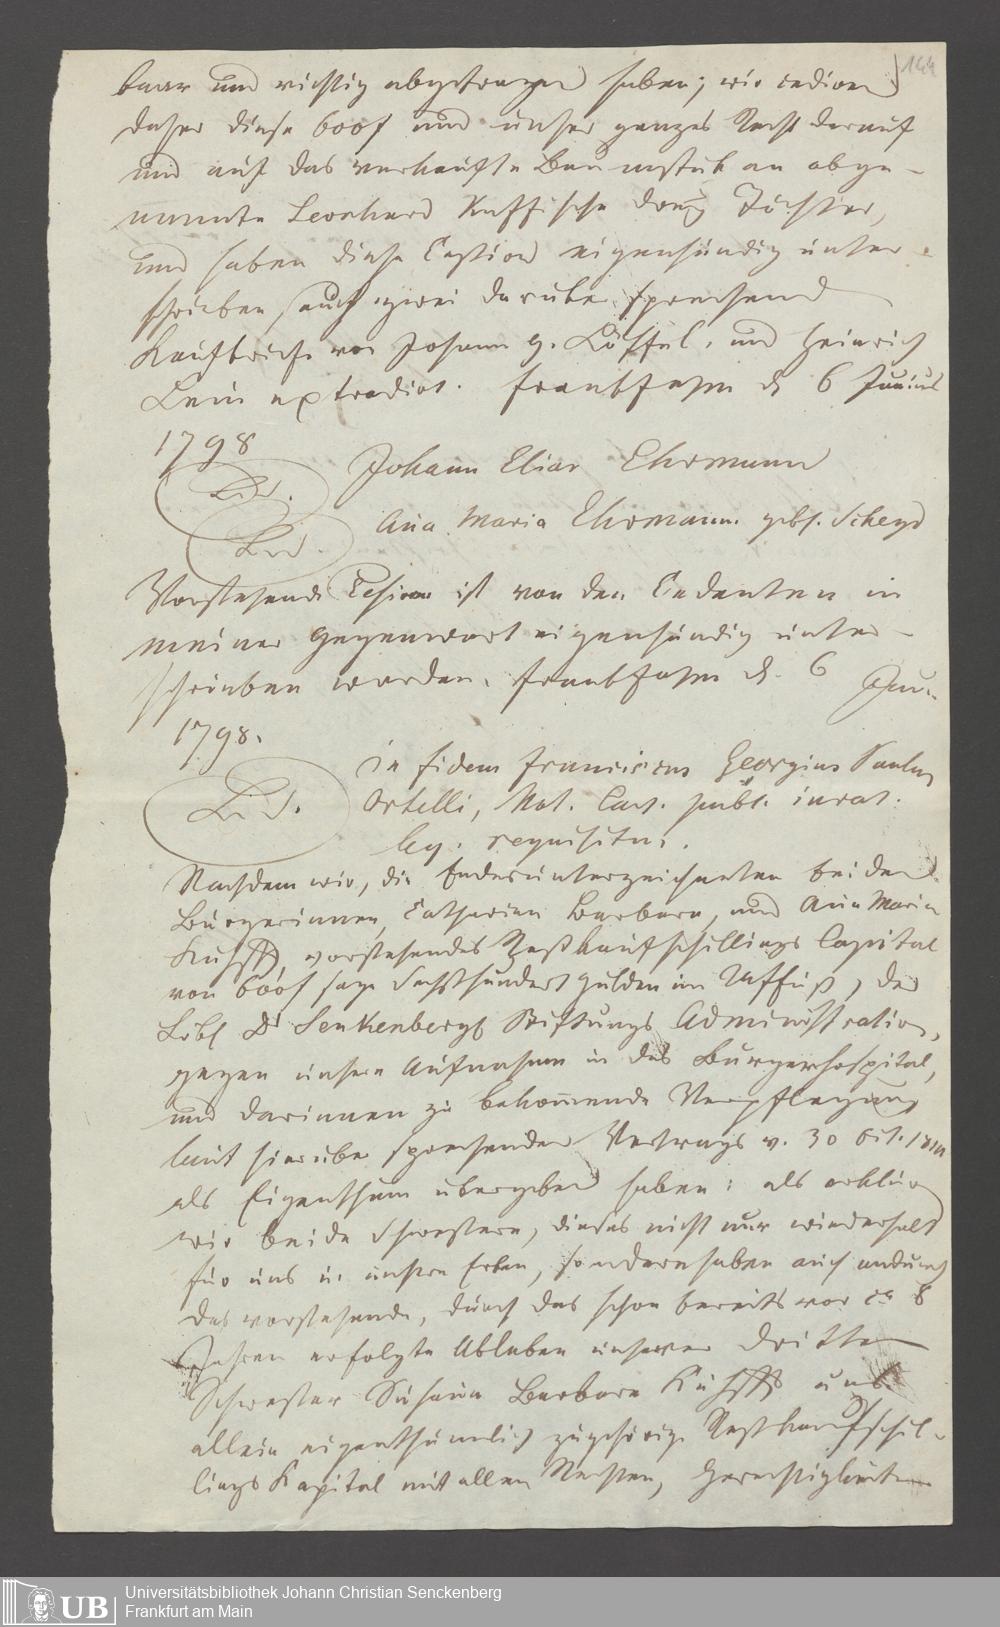 144
baar und richtig abgetragen haben; wir cediren
daher diese 600f und unser ganzes Recht darauf
und auf das verkaufte Baumstück an obge-
nannte Leonhard Kuffische drey Töchter,
und haben diese Cession eigenhändig unter-
schrieben, auch zwei darüber sprechend
Kaufbriefe von Johann G. Löffel. und Heinrich
Lein extradirt. Frankfurt d 6 Junius
1798
Johann Elias Ehrmann
L. S.
Ana Maria Ehrmann. geb. Scheyd
L. S.
Vorstehende Cesion ist von den Cedenten in
meiner Gegenwart eigenhändig unter-
schrieben worden. Frankfurt d. 6 Jun.
1798.
in fidem Franciscus Georgius Paulus
L. S.
Ortelli, Not. Caes. publ. iurat.
leg. requisitus.
Nachdem wir, die Endesunterzeichneten beiden
Bürgerinnen, Catharina Barbara, und Ana Maria
vorstehendes Restkaufschillings Capital
von 600f sage Sechshundert Gulden im Fuß, der
Löbl Dr Senkenbergs Stiftungs Administration,
gegen unsere Aufnahme in das Burgerhospital,
und darinnen zu bekommende Verpflegung
laut hierüber sprechenden Vertrags v. 30 Oct.
als Eigenthum übergeben haben: als erklären
wir beide Schwestern, dieses nicht nur wiederholt
für uns u. unsere Erben, sondern haben auch andurch
das vorstehende, durch das schon bereits vor ca 8
Jahren erfolgte Ableben unserer dritten
Schwester Susana Barbara uns
allein eigenthümlich zugehörige Restkaufschil-
lings Kapital mit allen Rechten, Gerechtigkeiten
UB
Universitätsbibliothek Johann Christian Senckenberg
Frankfurt am Main